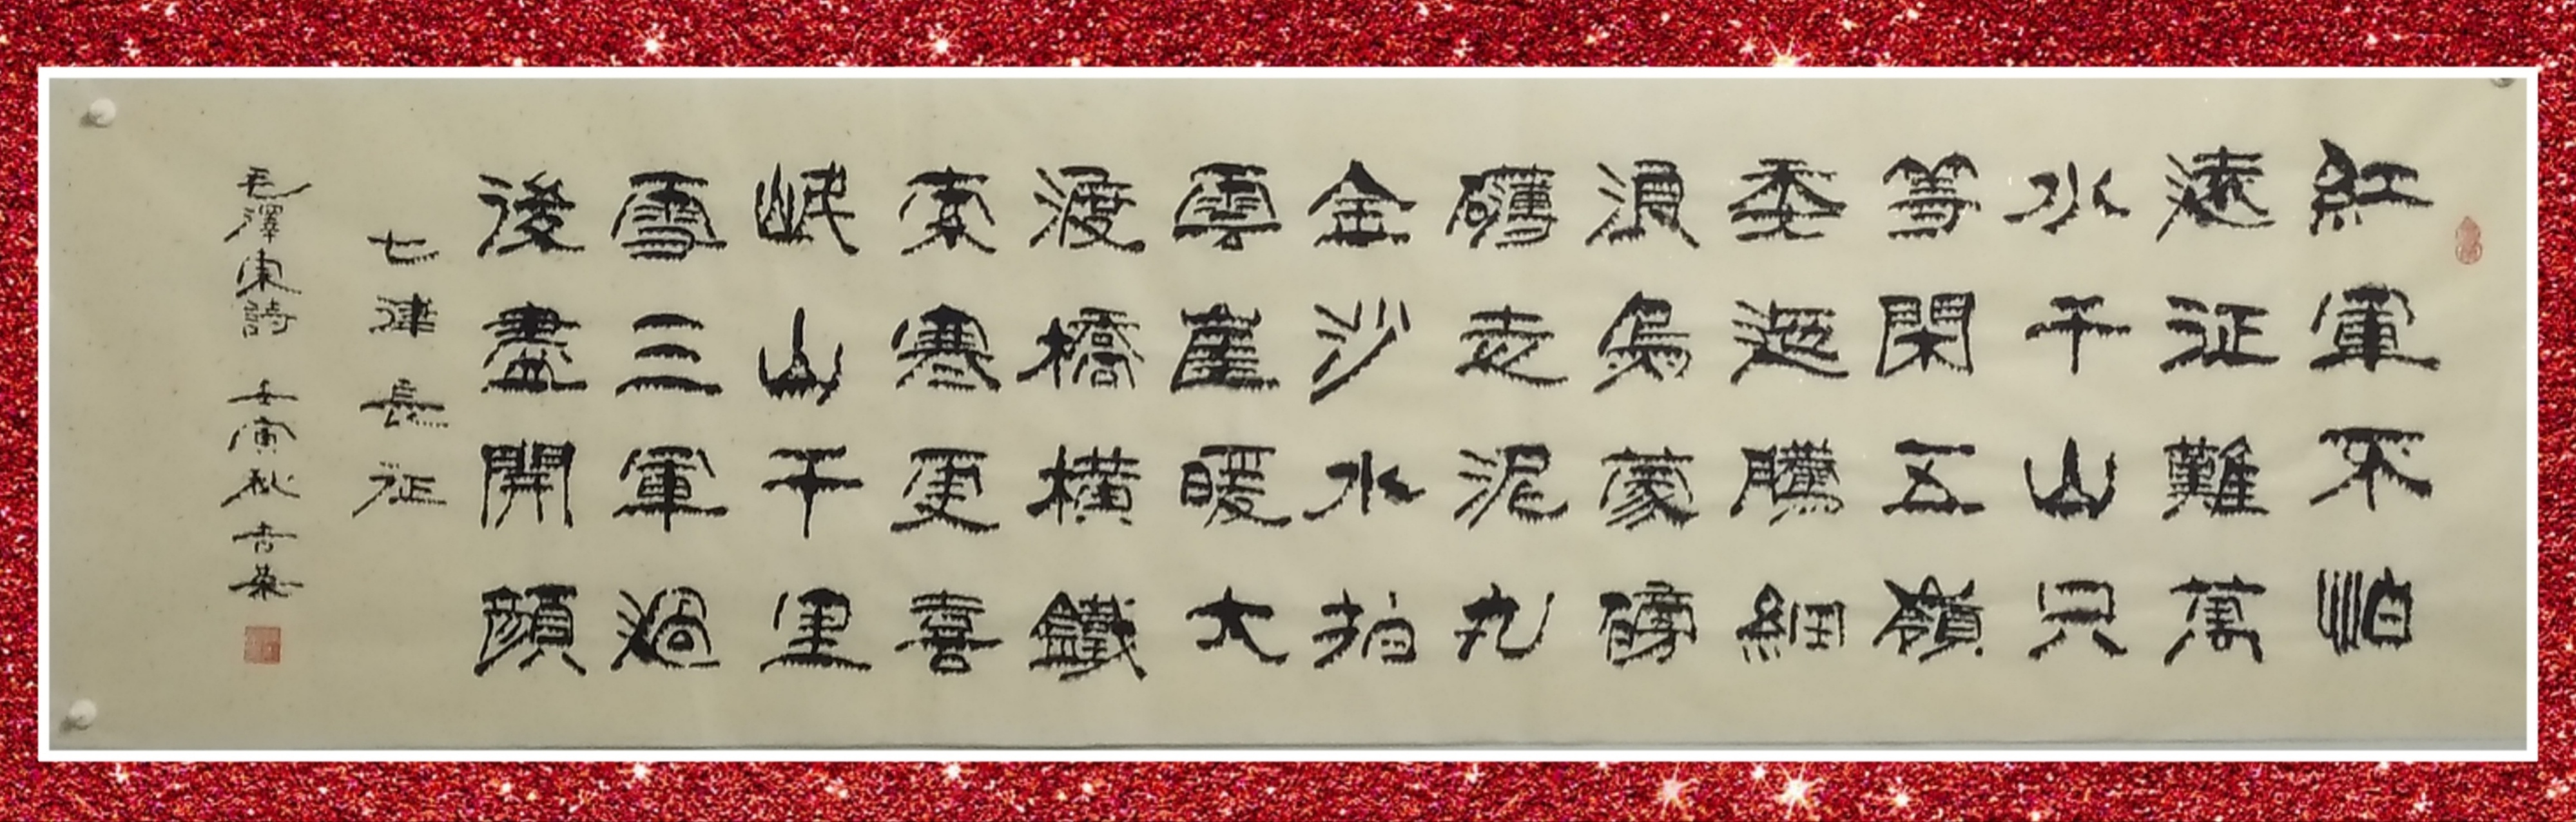 紅軍不怕
遠征難萬
水千山只
等閑五嶺
委迤騰細
浪烏蒙磅
礴走泥丸
金沙水拍
雲崖暖大
渡橋橫鐵
索寒更喜
岷山千里
雪三軍過
後盡開顏
七律長征
毛澤東詩 壬寅秋吉